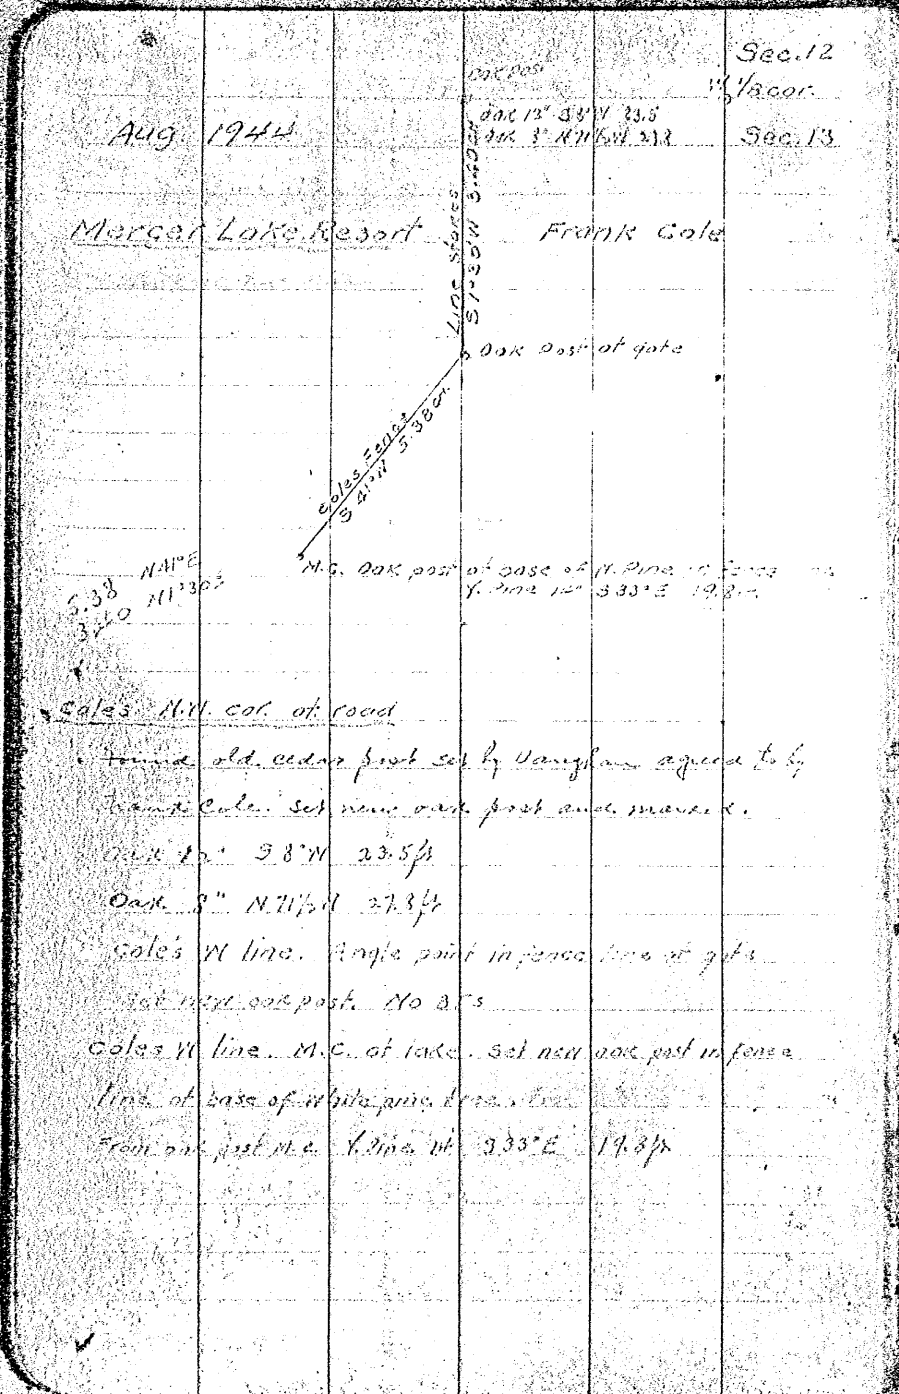 Sec. 12
Oak post
1/8 cor.
Oak 12" S8°W 23.5
Oak 8" N71½W 27.3
Aug 1944
Sec. 13
Mercer Lake Resort
Frank Cole
Line Stakes
S1°30'W 3.40 ch.
Oak Post at gate
Coles Fence
S 41°W 5.38 ch.
M.C. Oak post at base of W. Pine in fence
Y. Pine 14" S33°E 19.8
5.38 N41°E
3.40 N1°30'E
Cole's N.W. cor. at road
Found old cedar post set by Vaughan agreed to by
Frank Cole. Set new oak post and marked.
Oak 12" S8°W 23.5 ft
Oak 8" N71½W 27.3 ft
Cole's W line. Angle point in fence line at gate
Set new oak post. No BTs
Coles W line. M.C. at lake. Set new oak post in fence
line at base of white pine tree.
From oak post M.C. Y. Pine 14" S33°E 19.8 ft